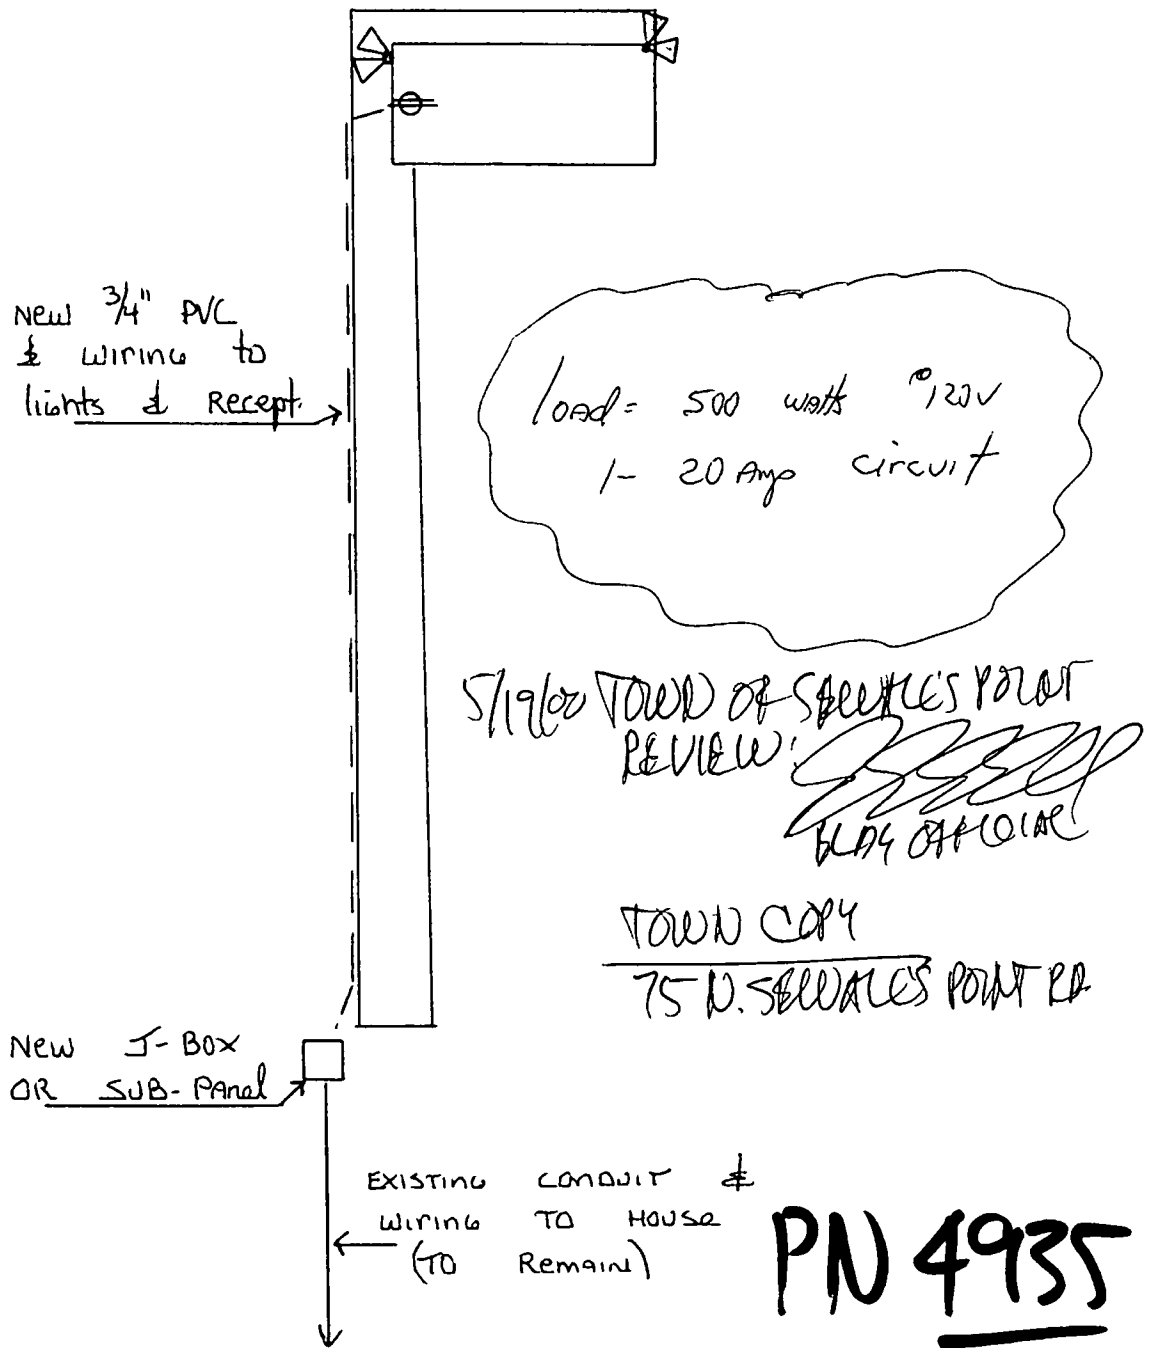 New 3/4" PVC
& wiring to
lights & Recept.
load = 500 watts @ 120V
1- 20 Amp circuit
5/19/00 TOWN OF SEWALL'S POINT
REVIEW:
BLDG OFFICIAL
TOWN COPY
75 N. SEWALL'S POINT RD.
New J-Box
OR SUB-Panel
EXISTING CONDUIT &
Wiring TO HOUSe
(TO Remain)
PN 4935